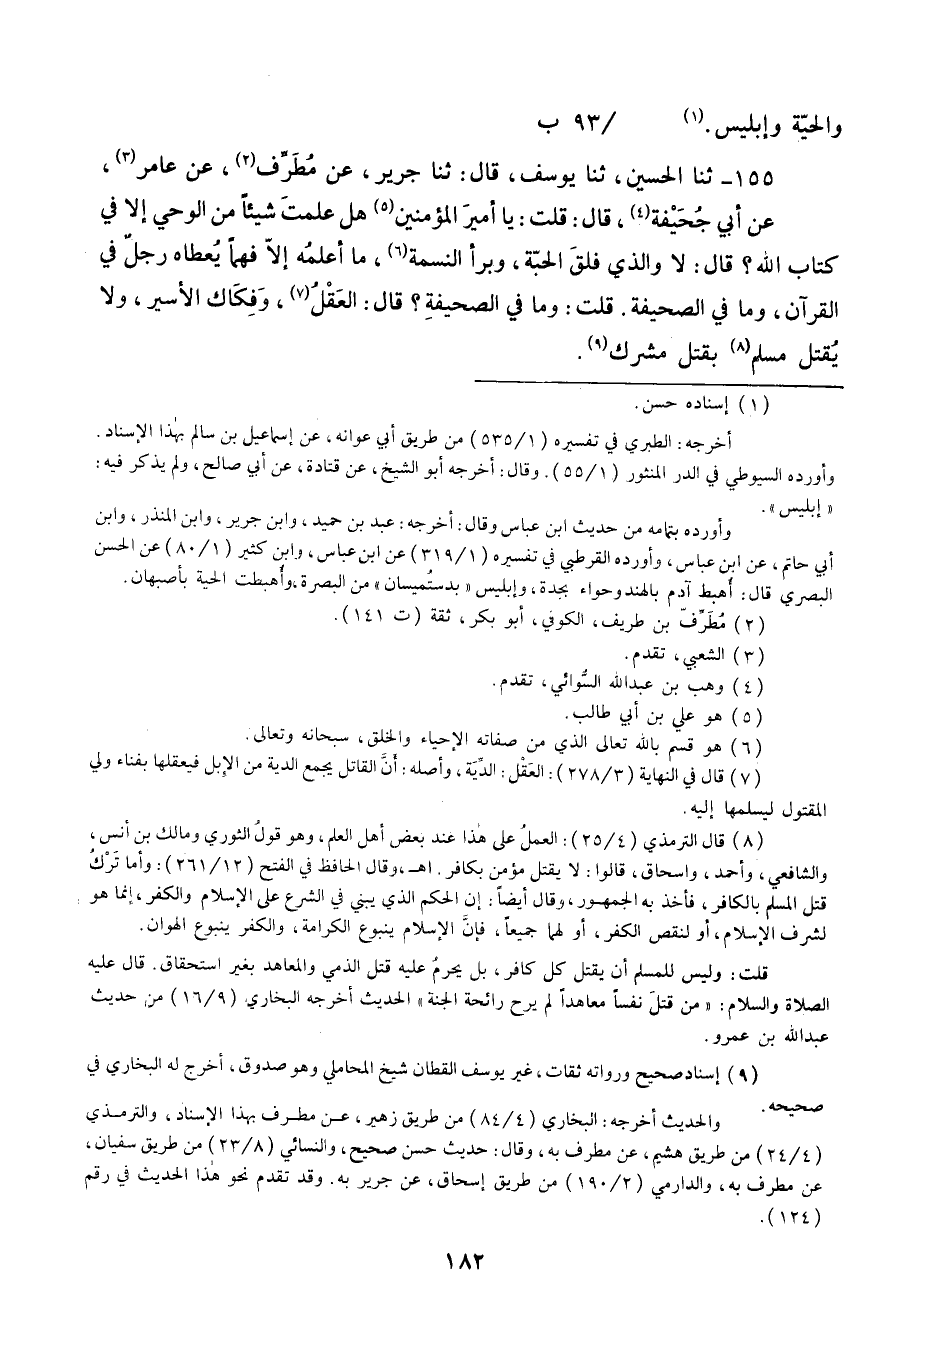 والحيّة وإبليس.(١) /٩٣ ب
١٥٥- ثنا الحسين، ثنا يوسف، قال: ثنا جرير، عن مُطَرِّف(٢)، عن عامر(٣)،
عن أبي جُحَيْفة(٤)، قال: قلت: يا أميرَ المؤمنين(٥) هل علمتَ شيئاً من الوحي إلا في
كتاب الله؟ قال: لا والذي فلقَ الحبّة، وبرأ النسمة(٦)، ما أعلمُه إلاّ فهماً يُعطاه رجلٌ في
القرآن، وما في الصحيفة. قلت: وما في الصحيفةِ؟ قال: العَقْلُ(٧)، وَفِكَاك الأسير، ولا
يُقتل مسلم(٨) بقتل مشرك(٩).
(١) إسناده حسن.
أخرجه: الطبري في تفسيره (٥٣٥/١) من طريق أبي عوانه، عن إسماعيل بن سالم بهٰذا الإسناد.
وأورده السيوطي في الدر المنثور (٥٥/١). وقال: أخرجه أبو الشيخ، عن قتادة، عن أبي صالح، ولم يذكر فيه:
«إبليس».
وأورده بتمامه من حديث ابن عباس وقال: أخرجه: عبد بن حميد، وابن جرير، وابن المنذر، وابن
أبي حاتم، عن ابن عباس، وأورده القرطبي في تفسيره (٣١٩/١) عن ابن عباس، وابن كثير (٨٠/١) عن الحسن
البصري قال: أُهبط آدم بالهند وحواء بجدة، وإبليس «بدستُميسان» من البصرة، وأُهبطت الحية بأصبهان.
(٢) مُطَرِّفّ بن طريف، الكوفي، أبو بكر، ثقة (ت ١٤١).
(٣) الشعبي، تقدم.
(٤) وهب بن عبدالله السُّوائي، تقدم.
(٥) هو علي بن أبي طالب.
(٦) هو قسم بالله تعالى الذي من صفاته الإحياء والخلق، سبحانه وتعالى.
(٧) قال في النهاية (٢٧٨/٣): العَقْل: الدِّيَة، وأصله: أنَّ القاتل يجمع الدية من الإبل فيعقلها بفناء ولي
المقتول ليسلمها إليه.
(٨) قال الترمذي (٢٥/٤): العملُ على هٰذا عند بعض أهل العلم، وهو قولُ الثوري ومالك بن أنس،
والشافعي، وأحمد، واسحاق، قالوا: لا يقتل مؤمن بكافر. اهـ، وقال الحافظ في الفتح (٢٦١/١٢): وأما تَرْكُ
قتل المسلم بالكافر، فأخذ به الجمهور، وقال أيضاً: إن الحكم الذي يبني في الشرع على الإسلام والكفر، إنما هو
لشرف الإسلام، أو لنقص الكفر، أو لهما جميعاً، فإنَّ الإسلام ينبوع الكرامة، والكفر ينبوع الهوان.
قلت: وليس للمسلم أن يقتل كل كافر، بل يحرمُ عليه قتل الذمي والمعاهد بغير استحقاق. قال عليه
الصلاة والسلام: «من قتلَ نفساً معاهداً لم يرح رائحة الجنة» الحديث أخرجه البخاري (١٦/٩) من حديث
عبدالله بن عمرو.
(٩) إسناد صحيح ورواته ثقات، غير يوسف القطان شيخ المحاملي وهو صدوق، أخرج له البخاري في
صحيحه.
والحديث أخرجه: البخاري (٨٤/٤) من طريق زهير، عن مطرف بهذا الإسناد، والترمذي
(٢٤/٤) من طريق هشيم، عن مطرف به، وقال: حديث حسن صحيح، والنسائي (٢٣/٨) من طريق سفيان،
عن مطرف به، والدارمي (١٩٠/٢) من طريق إسحاق، عن جرير به. وقد تقدم نحو هٰذا الحديث في رقم
(١٢٤).
١٨٢